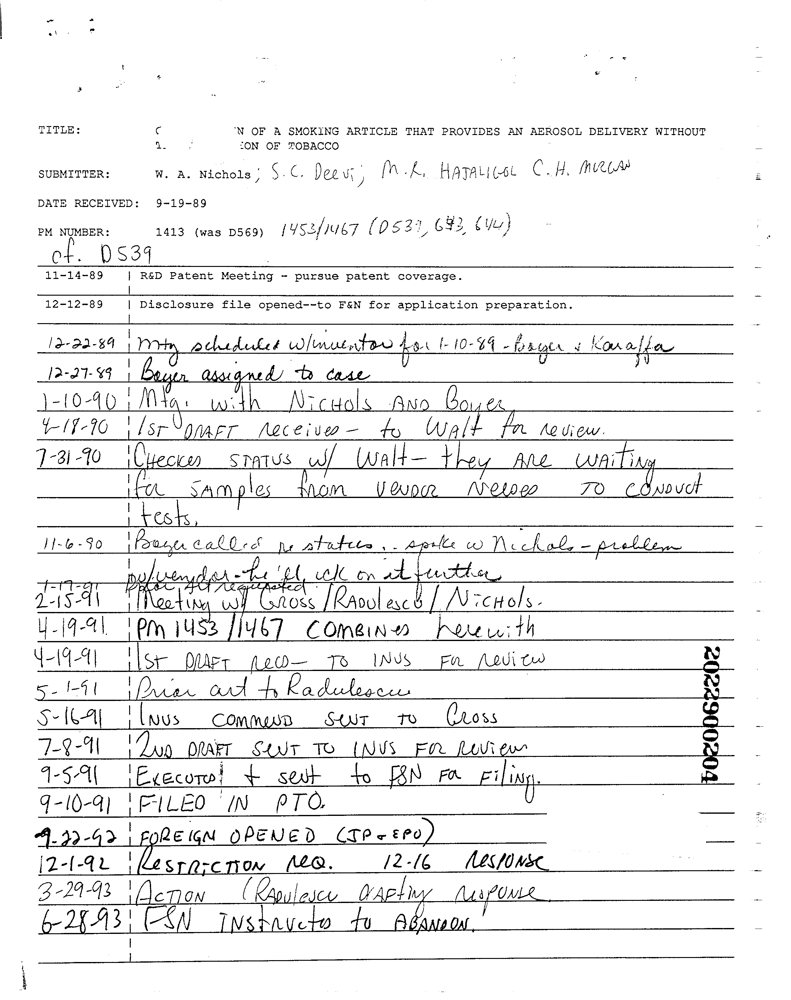 TITLE: 'N OF A SMOKING ARTICLE THAT PROVIDES AN AEROSOL DELIVERY WITHOUT
ION OF TOBACCO
SUBMITTER: W. A. Nichols; S.C. Deevi; M.R. HAJALIGOL C.H. MORGAN
DATE RECEIVED: 9-19-89
PM NUMBER: 1413 (was D569) 1453/1467 (D539, 643, 644)
cf. D539
11-14-89 R&D Patent Meeting - pursue patent coverage.
12-12-89 Disclosure file opened--to F&N for application preparation.
12-22-89 mtg scheduled w/inventor for 1-10-89 - Boyer & Karaffa
12-27-89 Boyer assigned to case
1-10-90 Mtg. with Nichols AND Boyer
4-18-90 1ST DRAFT received - to Walt for review.
7-31-90 Checked STATUS w/ Walt - they are waiting
for samples from vendor needed to conduct
tests.
11-6-90 Boyer called re status... spoke w Nichols - problem
w/vendor - he'll ck on it further
1-17-91 prior art requested
2-15-91 Meeting w/ Gross/Radulescu/Nichols.
4-19-91 PM 1453/1467 COMBINED herewith
4-19-91 1ST DRAFT RECD - TO INVS FOR review
5-1-91 Prior art to Radulescu
5-16-91 INVS COMMENTS SENT TO Gross
7-8-91 2ND DRAFT SENT TO INVS FOR Review
9-5-91 Executed & sent to F&N for Filing.
9-10-91 FILED IN PTO.
9-22-92 FOREIGN OPENED (JP & EPO)
12-1-92 Restriction req. 12-16 Response
3-29-93 Action (Radulescu drafting response
6-28-93 F&N Instructed to ABANDON.
2022900204